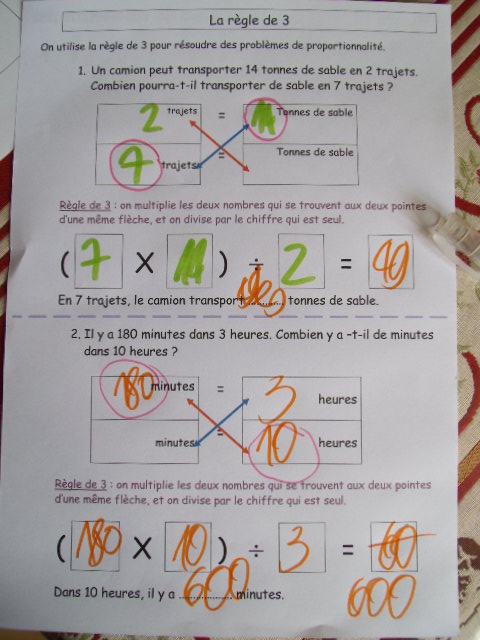 La règle de 3
On utilise la règle de 3 pour résoudre des problèmes de proportionnalité.
1. Un camion peut transporter 14 tonnes de sable en 2 trajets.
Combien pourra-t-il transporter de sable en 7 trajets ?
2 trajets = 14 Tonnes de sable
7 trajets = Tonnes de sable
Règle de 3 : on multiplie les deux nombres qui se trouvent aux deux pointes
d'une même flèche, et on divise par le chiffre qui est seul.
( 7 X 14 ) ÷ 2 = 49
En 7 trajets, le camion transport ............ tonnes de sable.
2. Il y a 180 minutes dans 3 heures. Combien y a -t-il de minutes
dans 10 heures ?
180 minutes = 3 heures
minutes = 10 heures
Règle de 3 : on multiplie les deux nombres qui se trouvent aux deux pointes
d'une même flèche, et on divise par le chiffre qui est seul.
( 180 X 10 ) ÷ 3 = 60
Dans 10 heures, il y a ...600... minutes. 600